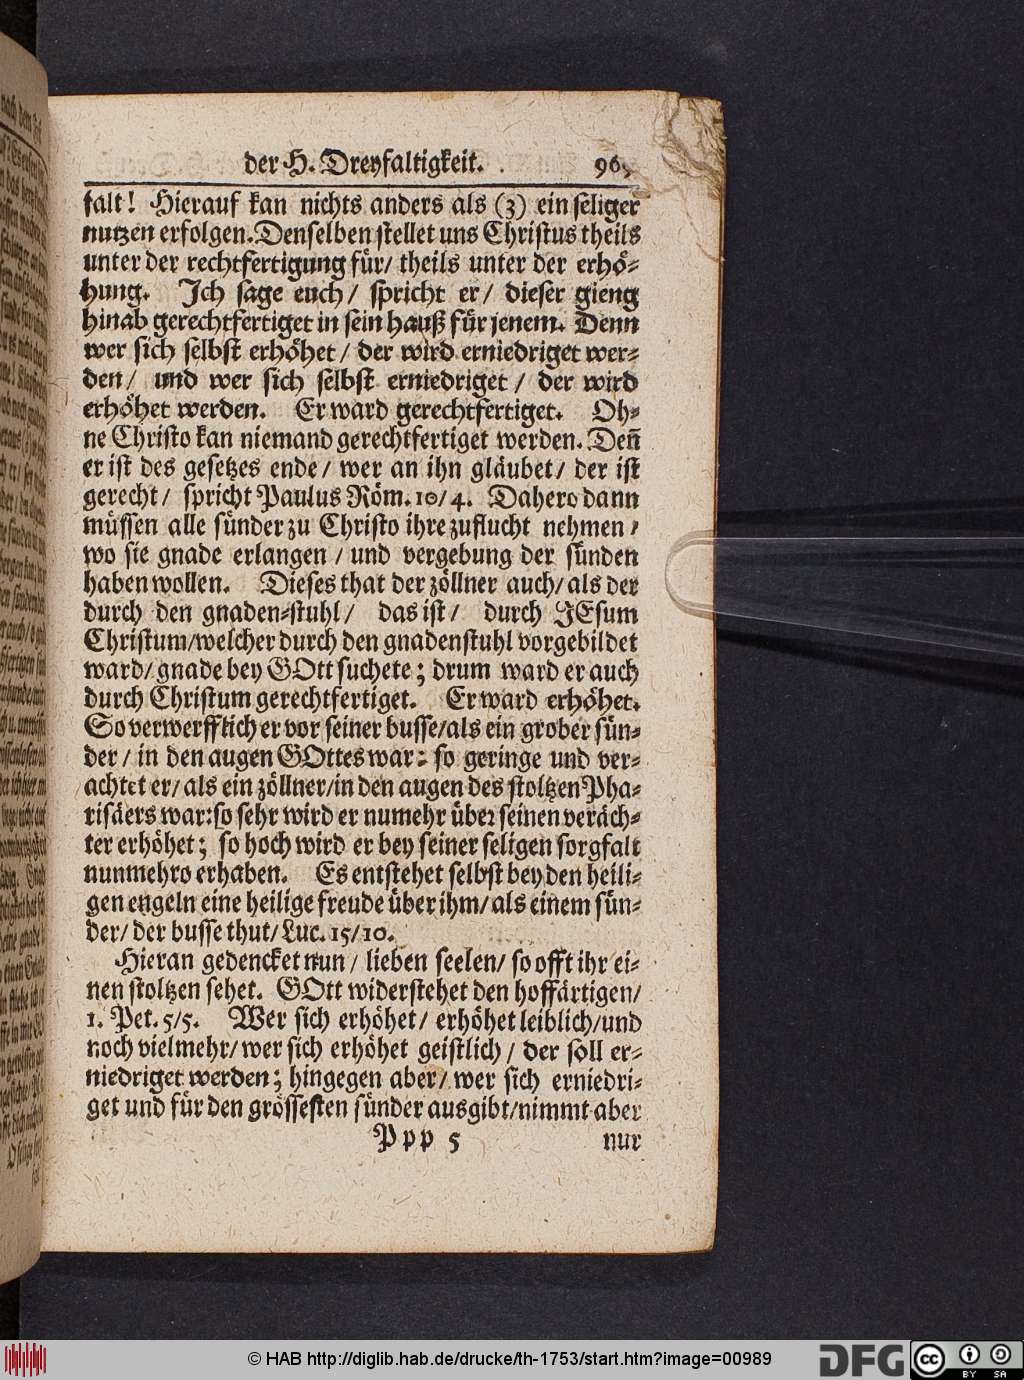 der H. Dreyfaltigkeit.
falt! Hierauf kan nichts anders als (3) ein seliger
nutzen erfolgen. Denselben stellet uns Christus theils
unter der rechtfertigung für/ theils unter der erhö⸗
hung. Ich sage euch/ spricht er/ dieser gieng
hinab gerechtfertiget in sein hauß für jenem. Denn
wer sich selbst erhöhet/ der wird erniedriget wer⸗
den/ und wer sich selbst erniedriget/ der wird
erhöhet werden. Er ward gerechtfertiget. Oh⸗
ne Christo kan niemand gerechtfertiget werden. Deñ
er ist des gesetzes ende/ wer an ihn gläubet/ der ist
gerecht/ spricht Paulus Röm. 10/4. Dahero dann
müssen alle sünder zu Christo ihre zuflucht nehmen/
wo sie gnade erlangen/ und vergebung der sünden
haben wollen. Dieses that der zöllner auch/ als der
durch den gnaden⸗stuhl/ das ist/ durch JEsum
Christum/ welcher durch den gnadenstuhl vorgebildet
ward/ gnade bey GOtt suchete; drum ward er auch
durch Christum gerechtfertiget. Er ward erhöhet.
So verwerfflich er vor seiner busse/ als ein grober sün⸗
der/ in den augen GOttes war: so geringe und ver⸗
achtet er/ als ein zöllner/ in den augen des stoltzen Pha⸗
risäers war: so sehr wird er numehr über seinen veräch⸗
ter erhöhet; so hoch wird er bey seiner seligen sorgfalt
nunmehro erhaben. Es entstehet selbst bey den heili⸗
gen engeln eine heilige freude über ihm/ als einem sün⸗
der/ der busse thut/ Luc. 15/10.
Hieran gedencket nun/ lieben seelen/ so offt ihr ei⸗
nen stoltzen sehet. GOtt widerstehet den hoffärtigen/
1. Pet. 5/5. Wer sich erhöhet/ erhöhet leiblich/ und
noch vielmehr/ wer sich erhöhet geistlich/ der soll er⸗
niedriget werden; hingegen aber/ wer sich erniedri⸗
get und für den grössesten sünder ausgibt/ nimmt aber
Ppp 5 nur
© HAB http://diglib.hab.de/drucke/th-1753/start.htm?image=00989
DFG
cc BY SA